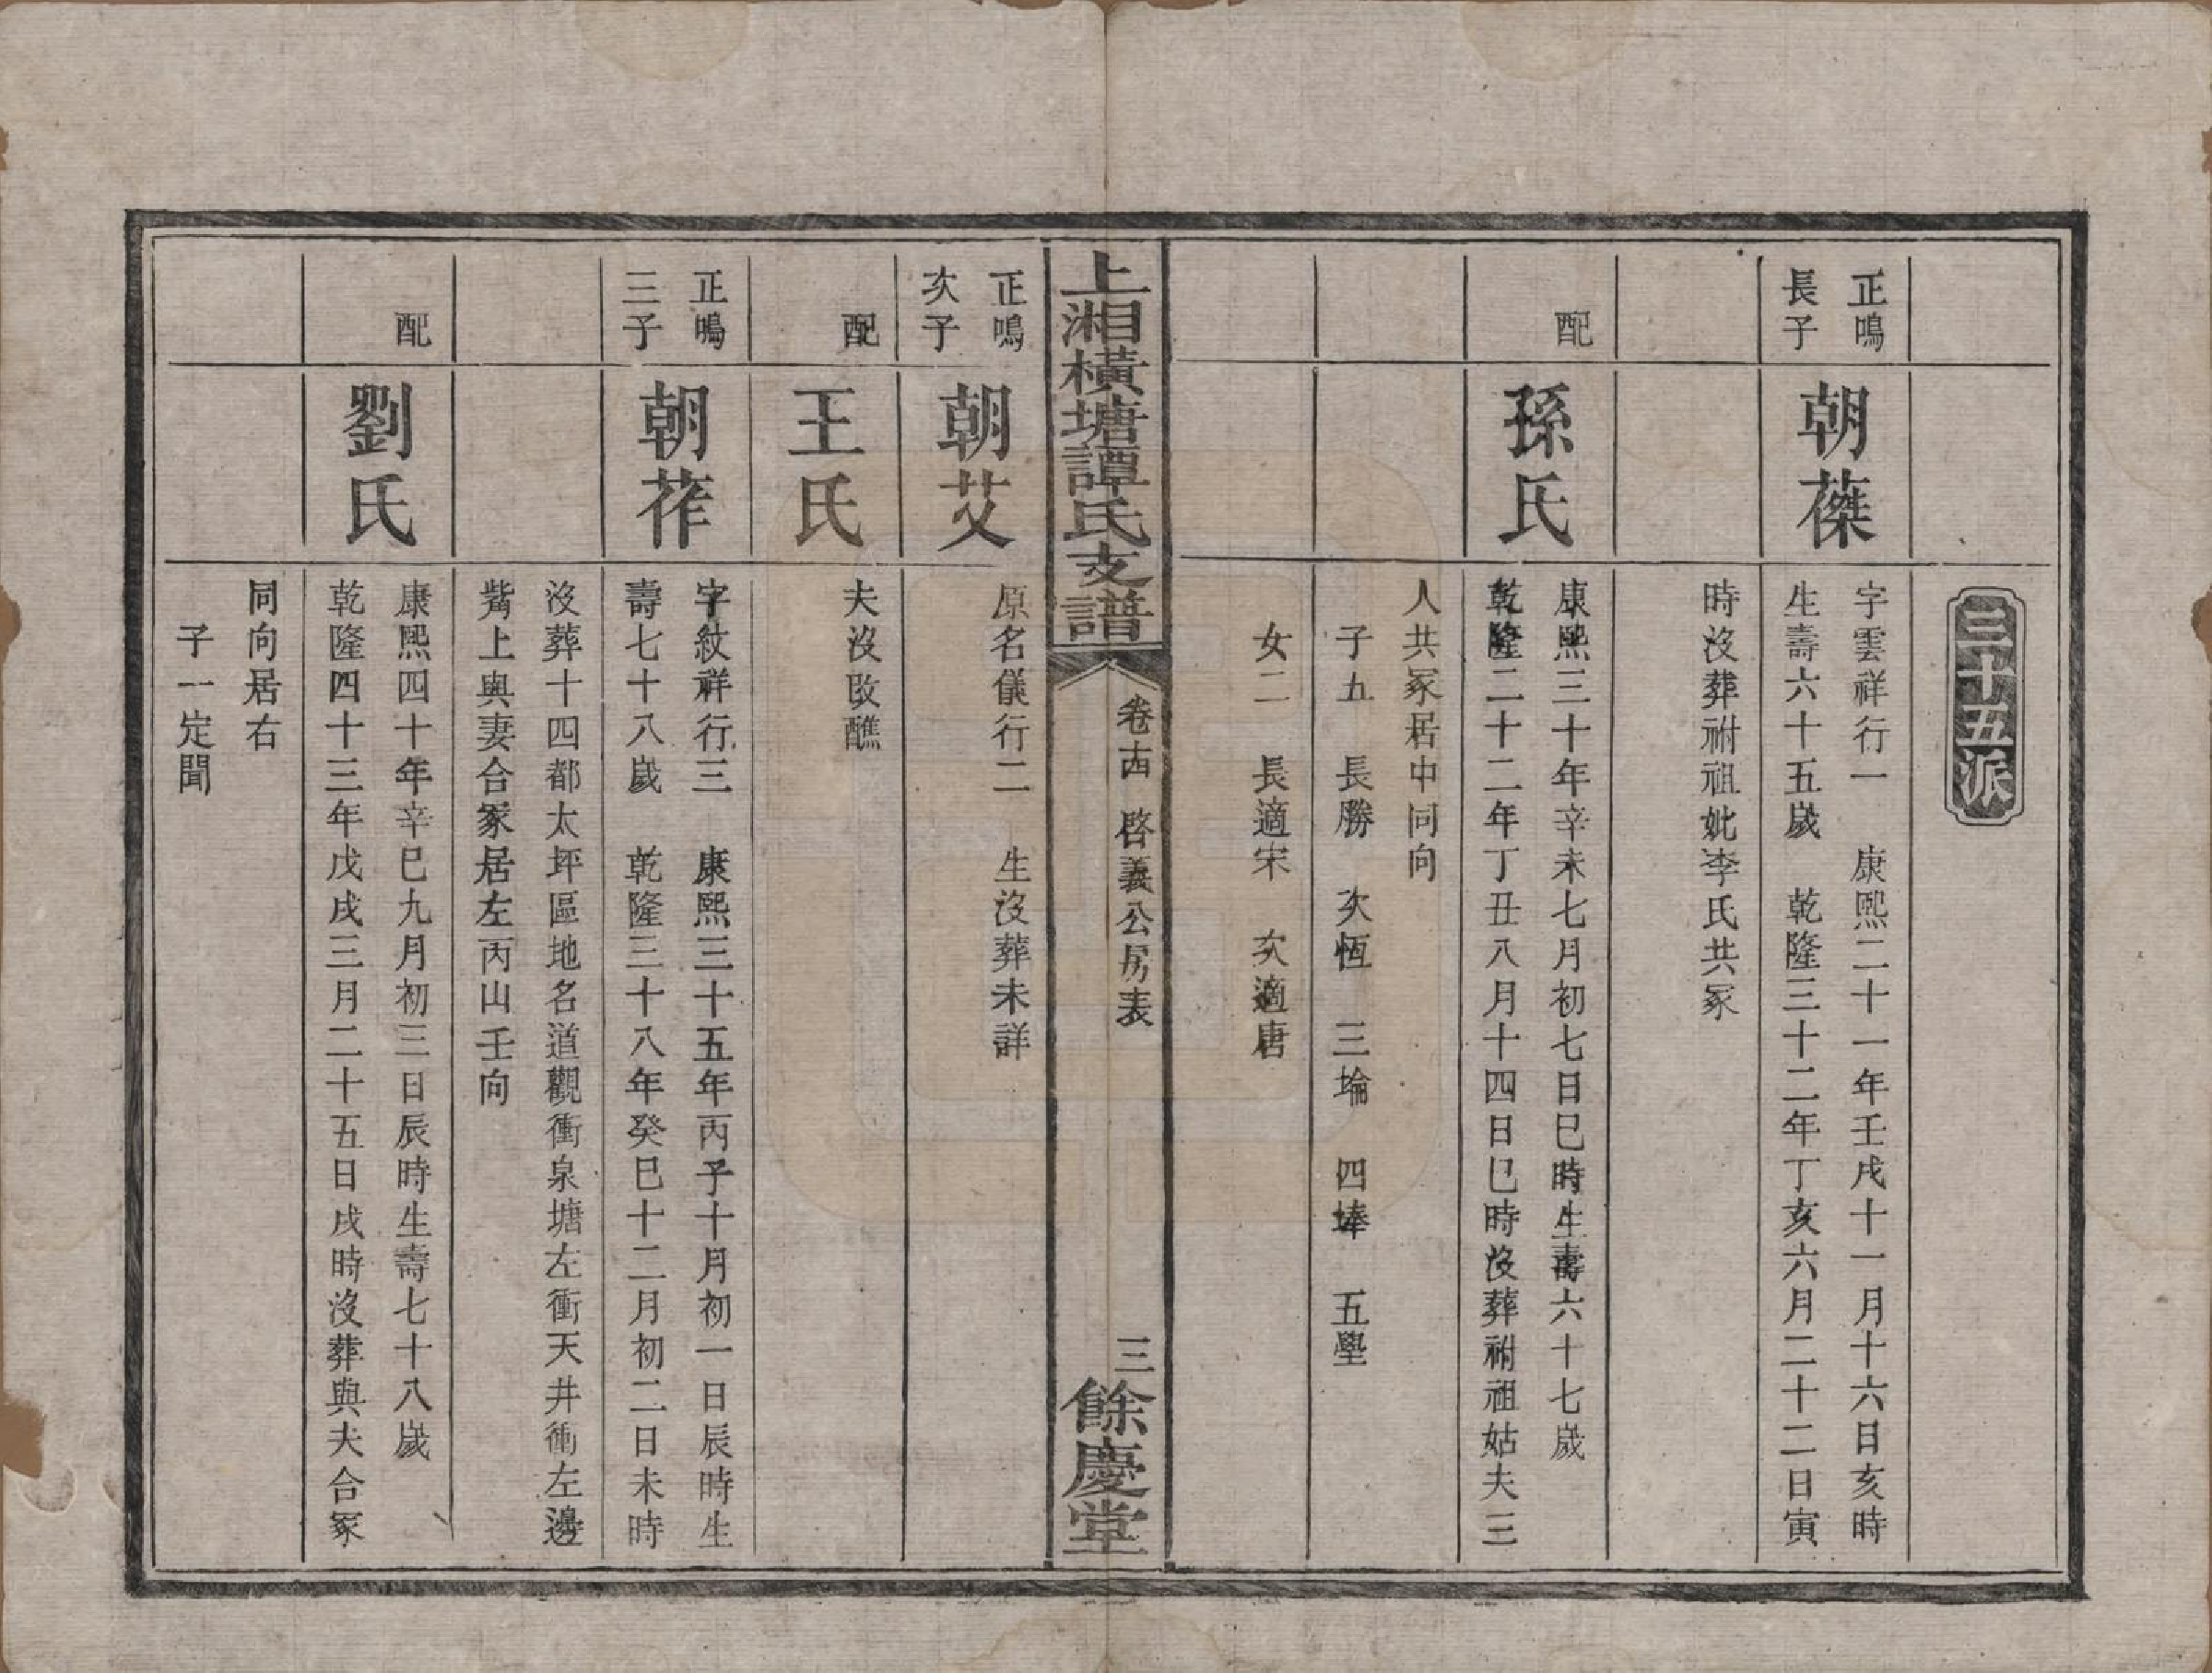 三十五派
正鳴
長子
朝䕣
字雲祥行一　康熙二十一年壬戌十一月十六日亥時
生壽六十五歲　乾隆三十二年丁亥六月二十二日寅
時沒葬祔祖妣李氏共冢
配
孫氏
康熙三十年辛未七月初七日巳時生壽六十七歲
乾隆二十二年丁丑八月十四日巳時沒葬祔祖姑夫三
人共冢居中同向
子五　長勝　次恆　三埨　四埲　五壆
女二　長適宋　次適唐
上湘橫塘譚氏支譜
卷十四　啓義公房表
三
餘慶堂
正鳴
次子
朝艾
原名儀行二　生沒葬未詳
配
王氏
夫沒改醮
正鳴
三子
朝莋
字紋祥行三　康熙三十五年丙子十月初一日辰時生
壽七十八歲　乾隆三十八年癸巳十二月初二日未時
沒葬十四都太坪區地名道觀衝泉塘左衝天井衝左邊
觜上與妻合冢居左丙山壬向
配
劉氏
康熙四十年辛巳九月初三日辰時生壽七十八歲
乾隆四十三年戊戌三月二十五日戌時沒葬與夫合冢
同向居右
子一定聞